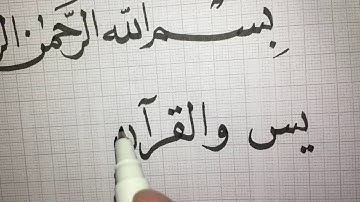 بِسْمِ اللّٰه الرَّحمٰن
يس والقرآن